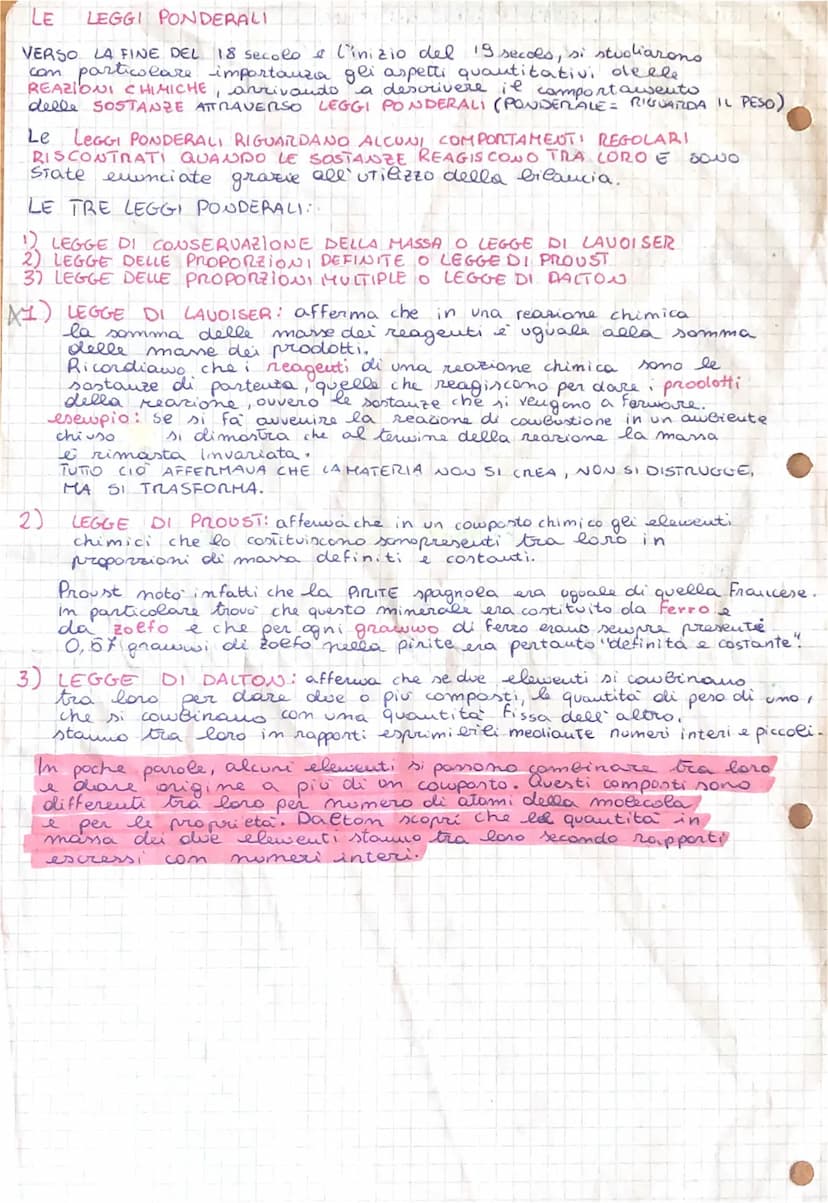 LE LEGGI PONDERALI
VERSO LA FINE DEL 18 secolo e l'inizio del 19 secolo, si studiarono
con particolare importanza gli aspetti quantitativi delle
REAZIONI CHIMICHE, arrivando a descrivere il comportamento
delle SOSTANZE ATTRAVERSO LEGGI PONDERALI (PONDERALE = RIGUARDA IL PESO)
Le LEGGI PONDERALI RIGUARDANO ALCUNI COMPORTAMENTI REGOLARI
RISCONTRATI QUANDO LE SOSTANZE REAGISCONO TRA LORO E SONO
State enunciate grazie all'utilizzo della bilancia.
LE TRE LEGGI PONDERALI:
1) LEGGE DI CONSERVAZIONE DELLA MASSA O LEGGE DI LAVOISER
2) LEGGE DELLE PROPORZIONI DEFINITE O LEGGE DI PROUST
3) LEGGE DELLE PROPORZIONI MULTIPLE O LEGGE DI DALTON
1) LEGGE DI LAVOISER: afferma che in una reazione chimica
la somma delle masse dei reagenti è uguale alla somma
delle masse dei prodotti.
Ricordiamo che i reagenti di una reazione chimica sono le
sostanze di partenza, quelle che reagiscono per dare i prodotti
della reazione, ovvero le sostanze che si vengono a formare.
esempio: se si fa avvenire la reazione di combustione in un ambiente
chiuso si dimostra che al termine della reazione la massa
è rimasta invariata.
TUTTO CIÒ AFFERMAVA CHE LA MATERIA NON SI CREA, NON SI DISTRUGGE,
MA SI TRASFORMA.
2) LEGGE DI PROUST: afferma che in un composto chimico gli elementi
chimici che lo costituiscono sono presenti tra loro in
proporzioni di massa definiti e costanti.
Proust notò infatti che la PIRITE spagnola era uguale di quella Francese.
In particolare trovò che questo minerale era costituito da Ferro e
da zolfo e che per ogni grammo di ferro erano sempre presenti
0,57 grammi di zolfo nella pirite era pertanto "definita e costante".
3) LEGGE DI DALTON: afferma che se due elementi si combinano
tra loro per dare due o più composti, le quantità di peso di uno,
che si combinano con una quantità fissa dell'altro,
stanno tra loro in rapporti esprimibili mediante numeri interi e piccoli.
In poche parole, alcuni elementi si possono combinare tra loro
e dare origine a più di un composto. Questi composti sono
differenti tra loro per numero di atomi della molecola
e per le proprietà. Dalton scoprì che le quantità in
massa dei due elementi stanno tra loro secondo rapporti
escressi con numeri interi.